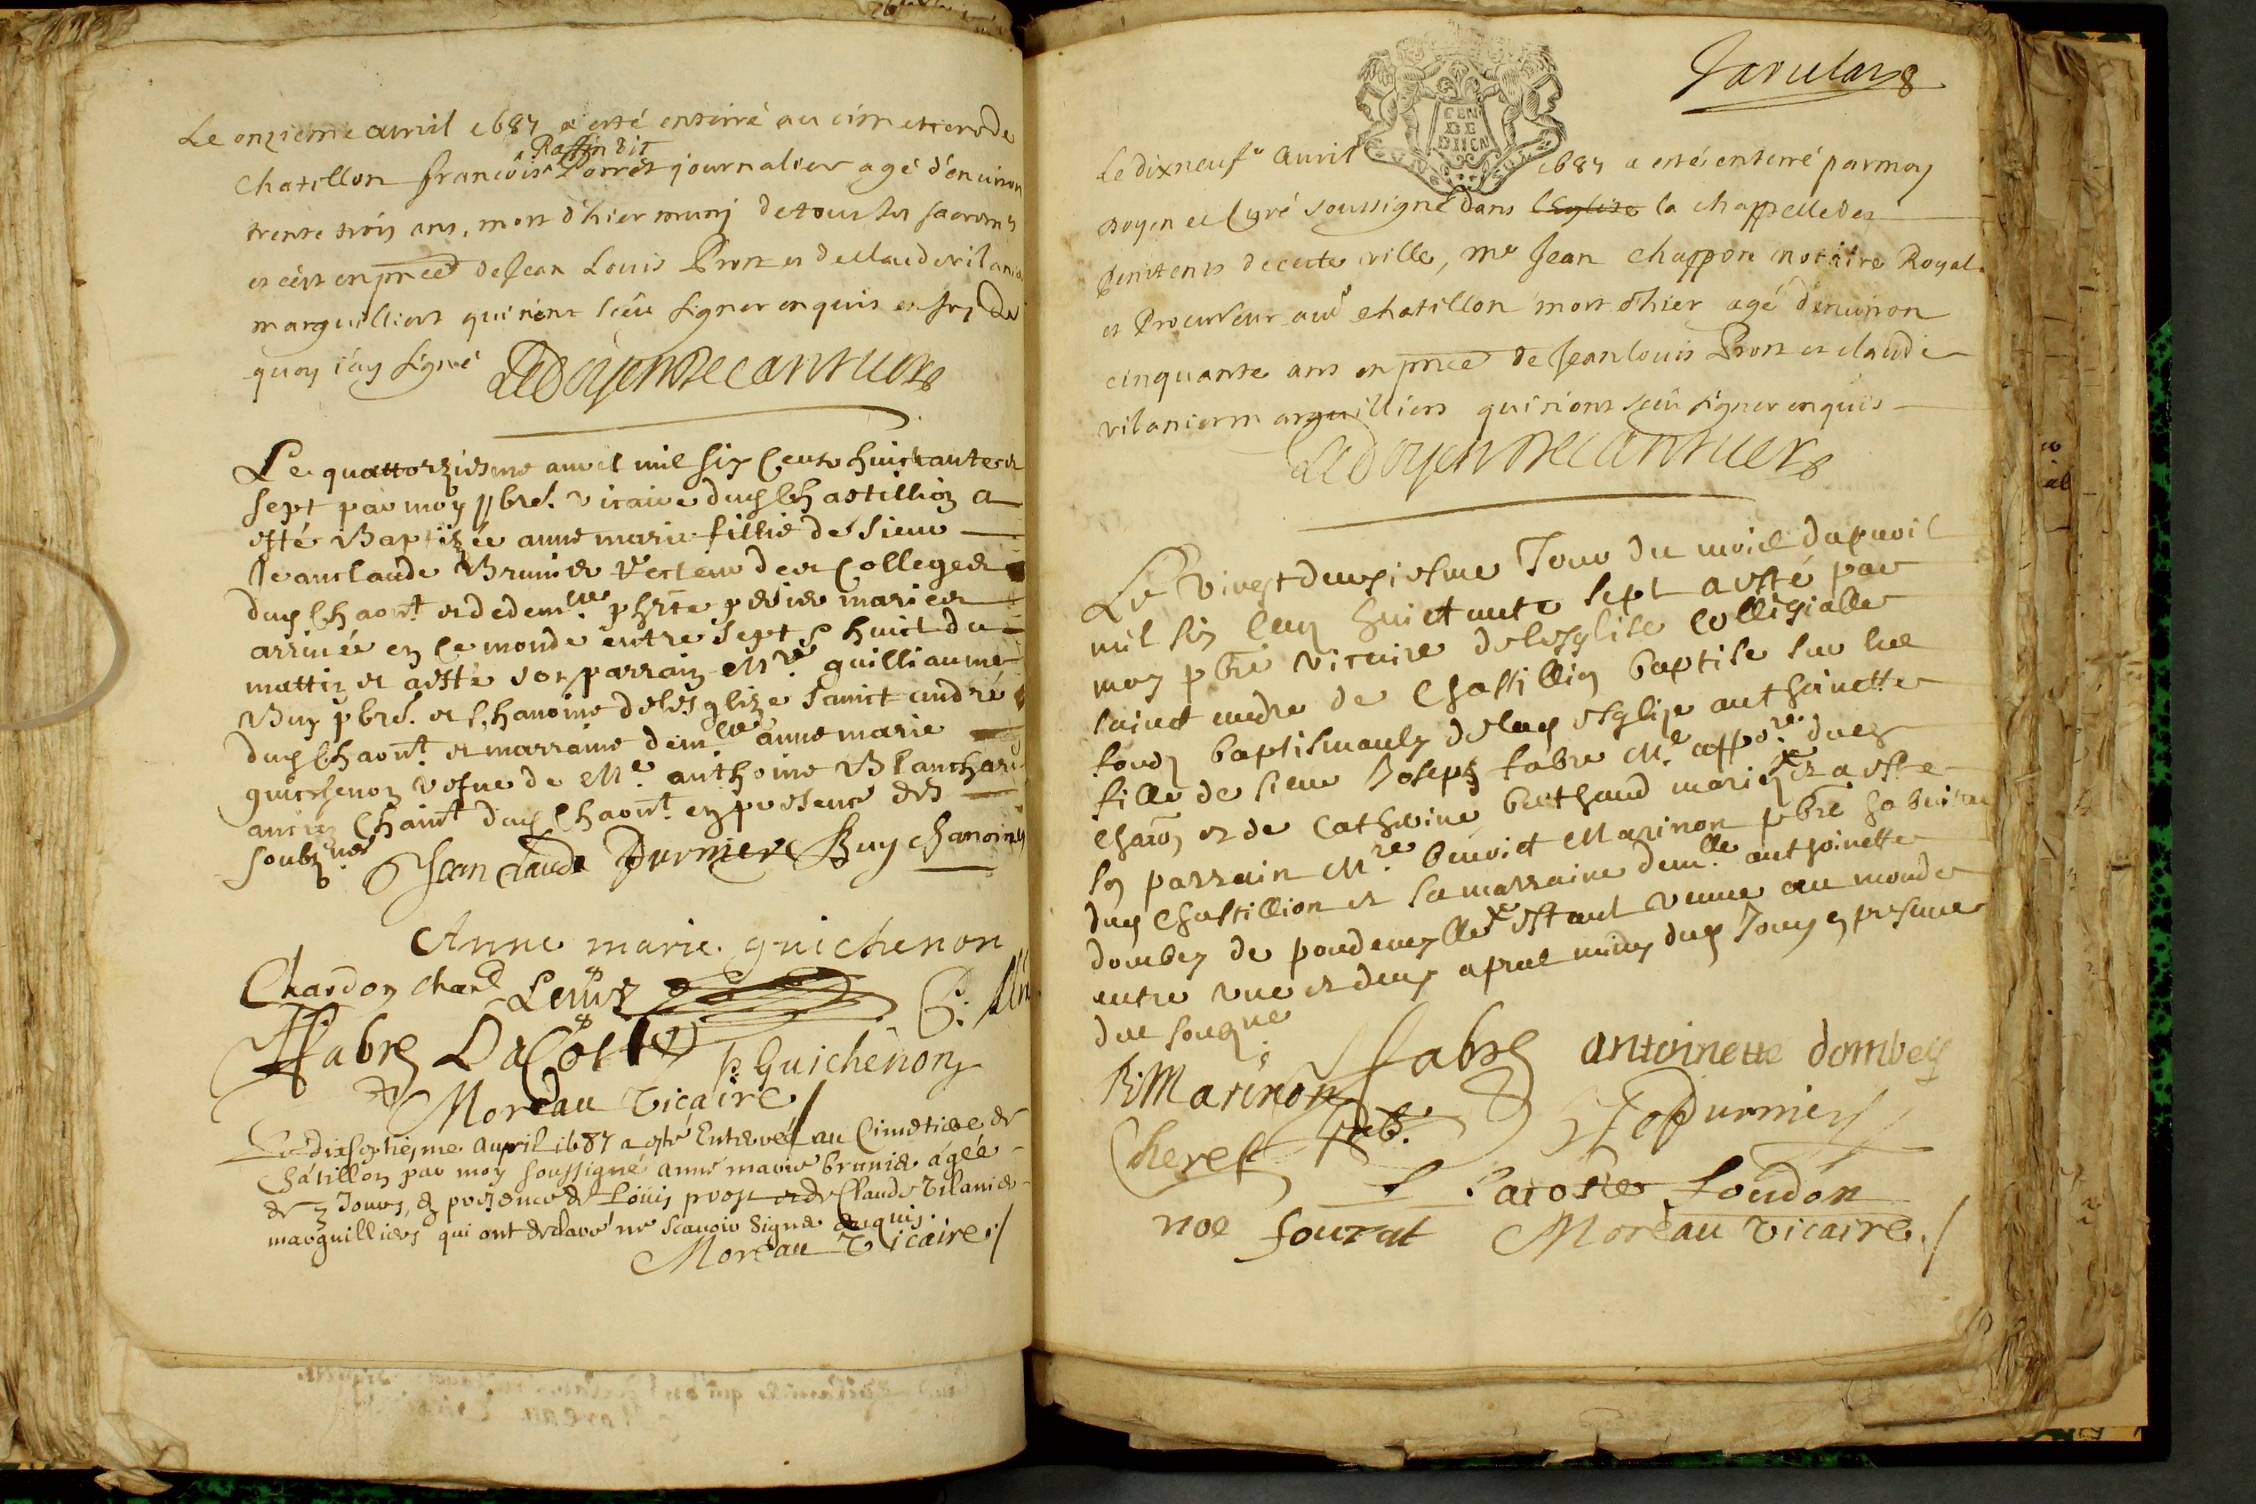 Le onzieme avril 1687 a esté enterré au cimetiere de
Raffin dit
Chatillon francois Porret journalier agé d'environ
trente trois ans, mort d'hier muni de tous les sacrem.ts
et c'est en pnce de Jean Louis Pront et de claude vilanier
marguilliers qui n'ont sceu signer enquis et
quoy j'ay signé Le doyen De cannuers
Le quattorziesme avvril mil six Cents huictante et
sept par moy pbre. vicaire dud Chastillion a
esté Baptizée anne marie fillie de sieur
Jeanclaude Brunier recteur des Colleges
dud et de dem.lle mariés
arrivée en ce monde entre sept & huict du
mattin et a esté son parrain M.re guilliaume
Buy pbre. et Chanoine de l'esglize sainct andré
dud et marraine dem.lle anne marie
guichenon vefve de M.e anthoine Blanchard
ancien dud en presence des
soubz.nes Jean Claude Burnier Buy chanoine
Anne marie guichenon
Chardon chan
Fabre Lacoste p Guichenon
Moreau vicaire /
Le dixseptiesme apvril 1687 a esté Enterrée au Cimetiere de
Châtillon par moy soussigné anne marie brunier agée
de 3 Jours, en presence de Loüis prost et de Claude vilanier
marguilliers qui ont declaré ne scavoir signer enquis.
Moreau vicaire /
CEN
DE
Le dixneuf.e avril 1687 a esté enterré par moy
Doyen et Curé soussigné dans l'Eglise la chappelle des
penitents de cette ville, m.e Jean chappon notaire Royal
et Procureur aud chatillon mort d'hier agé d'environ
cinquante ans en pnce de Jean louis Pront et claude
vilanier marguilliers qui n'ont sceu signer enquis
Le doyen De cannuers
Le vingt deuxiesme Jour du mois dapvril
mil six cen huictante sept a esté par
moy pbre vicaire de l'esglise collegialle
sainct andre de Chastillion baptise sur les
fondz baptismaulx de lad esglise anthoinette
fille de sieur Joseph fabre M.e appo.re dud
et de Catherine mariés et a esté
so parrain M.re benoict Marinon pbre
dud Chastillion et sa marraine dem.lle anthoinette
dombey de estant venue au monde
entre une et deux apres midy dud Jour en presence
des soubz.nes
B. Marinon fabre antoinette dombey
pbr. Burnier
Cheref Lacoste Loudon
noe fourat Moreau vicaire. /